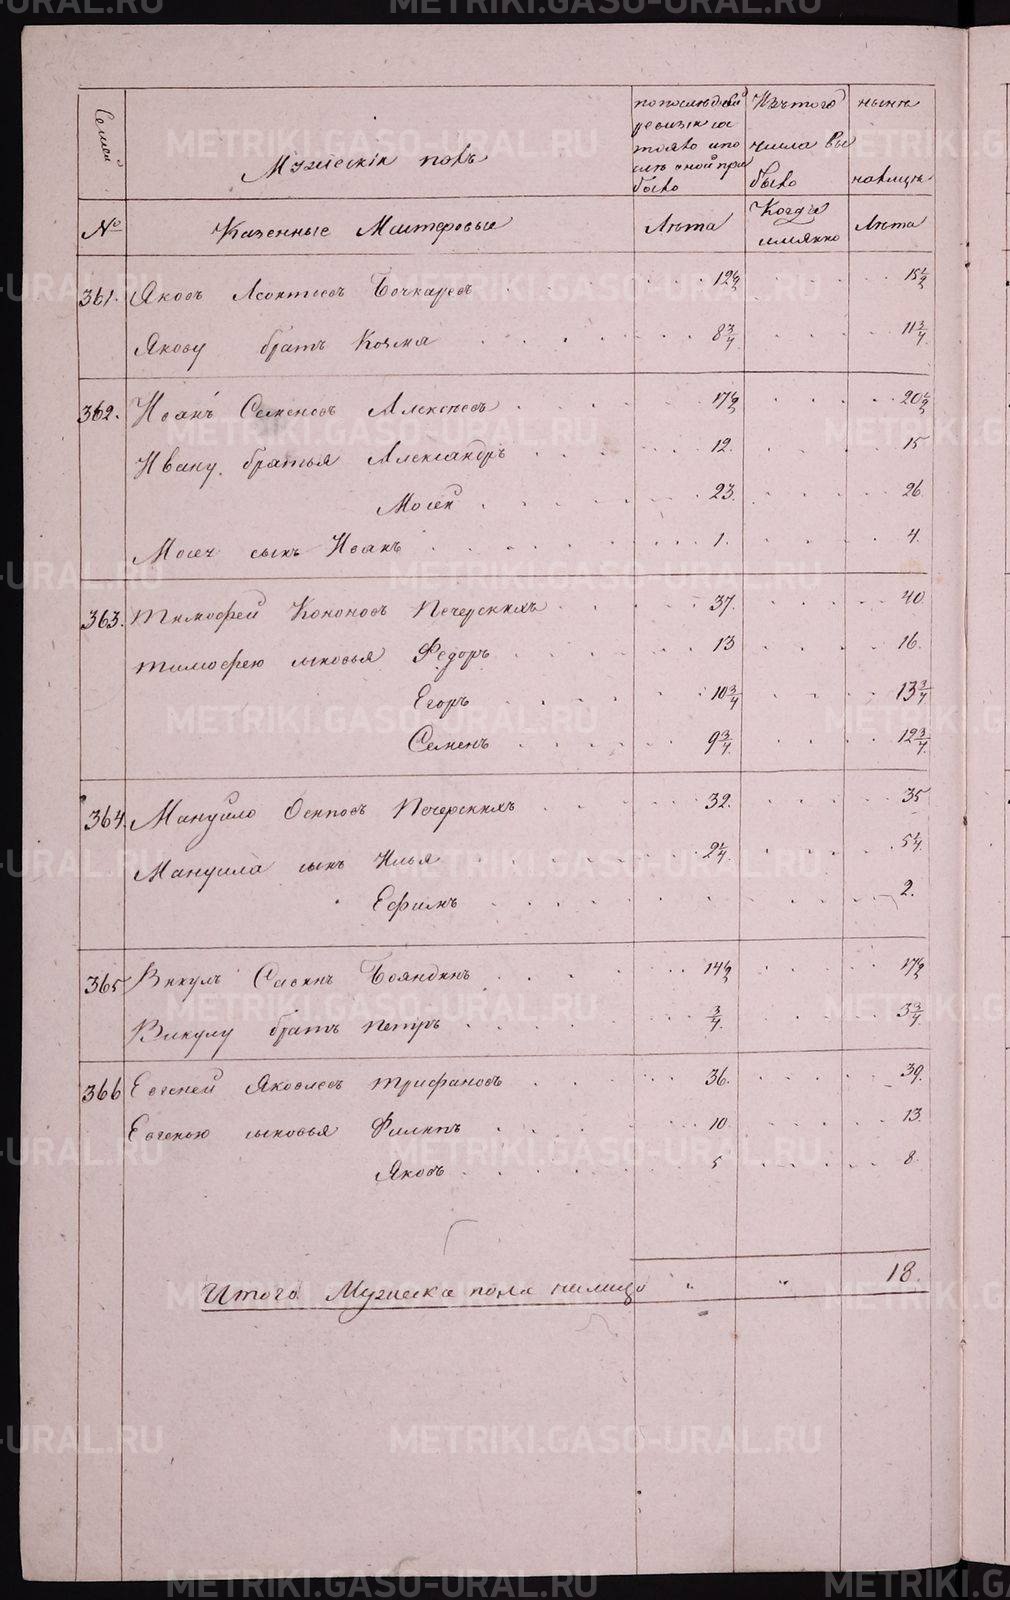 Семей
Мужескій полъ
по последней
ревизіи со
стояло и по
слѣ оной при
было
Изъ того
числа вы
было
нынѣ
на лицѣ
№
Казенные Мастеровые
Лѣта
Когда
имянно
Лѣта
361. Яковъ Леонтьевъ Бочкаревъ 12½ 15½
Якову братъ Козма 8¾ 11¾
362. Иванъ Семеновъ Алексѣевъ 17½ 20½
Ивану братья Александръ 12. 15
Мосей 23. 26.
Мосея сынъ Иванъ 1. 4.
363. Тимофей Кононовъ Печерскихъ 37. 40.
Тимофею сыновья Федоръ 13 16.
Егоръ 10¾ 13¾
Семенъ 9¾ 12¾
364. Мануйло Осиповъ Печерскихъ 32. 35
Мануила сынъ Илья 2¼ 5¼
Ефимъ 2.
365 Викулъ Савинъ Бояндинъ 14½ 17½
Викулу братъ Петръ ¾ 3¾
366 Евгеней Яковлевъ Трифановъ 36. 39.
Евгенью сыновья Филипъ 10. 13.
Яковъ 5 8.
Итого Мужеска пола налицо " " 18.
METRIKI.GASO-URAL.RU